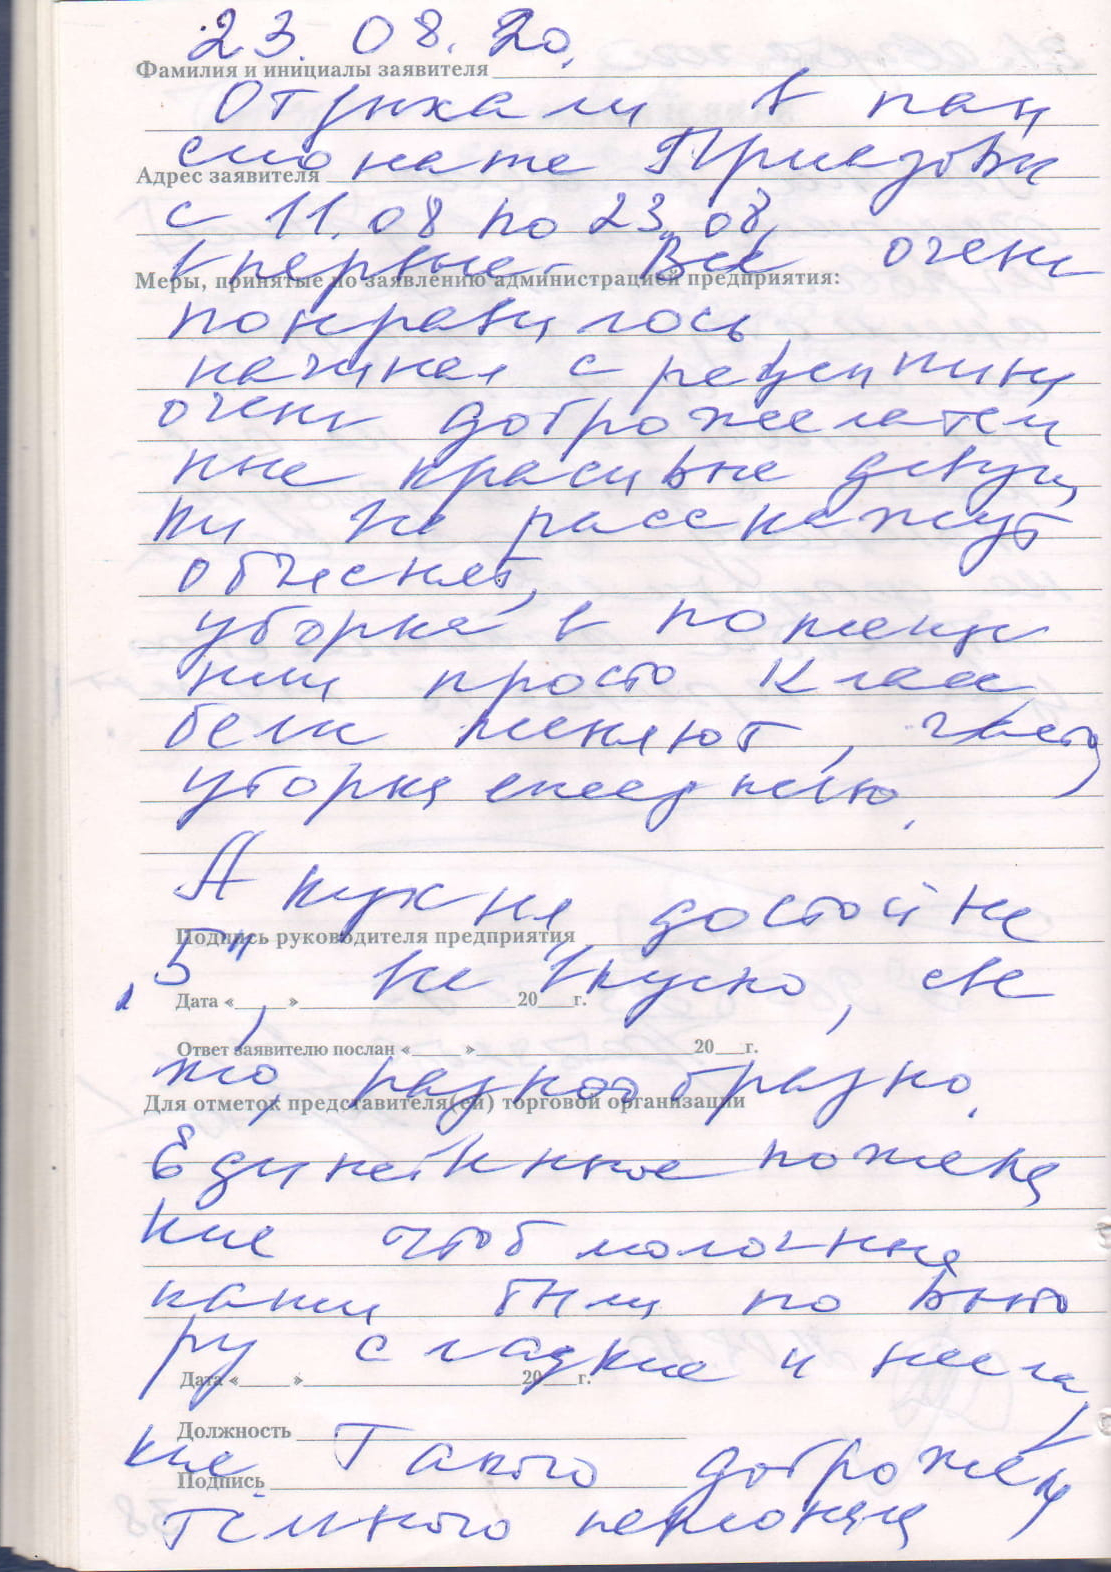 23. 08. 20.
Фамилия и инициалы заявителя
Отдыхали в пан
сионате Приазовье
Адрес заявителя
с 11.08 по 23.08,
впервые. Все очень
Меры, принятые по заявлению администрацией предприятия:
понравилось,
начиная с
очень доброжелатель
ные красивые девуш
ки все расскажут
объяснят,
уборка в помеще
нии просто класс
белье меняют, часто
уборка ежедневно.
А кухня достойна
Подпись руководителя предприятия
"5", все вкусно, све
Дата «____» 20___г.
Ответ заявителю послан «____» 20___г.
жо, разнообразно.
Для отметок представителя(ей) торговой организации
Единственное пожела
ние чтоб молочные
каши были по выбо
ру сладкие и несла
Дата «____» 20___г.
Должность
кие Такого доброжела
Подпись
тельного персонала